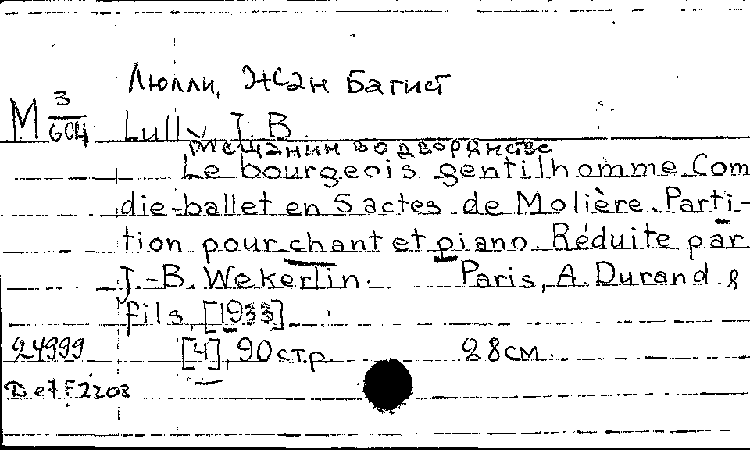 Люлли, Жан Батист
М 3/604 Lully J. B.
Мещанин во дворянстве
Le bourgeois gentilhomme. Com
die-ballet en 5 actes de Molière. Parti-
tion pour chant et piano. Réduite par
J.-B. Wekerlin. Paris, A. Durand &
fils, [1933].
24999 [4], 90 стр. 28 см